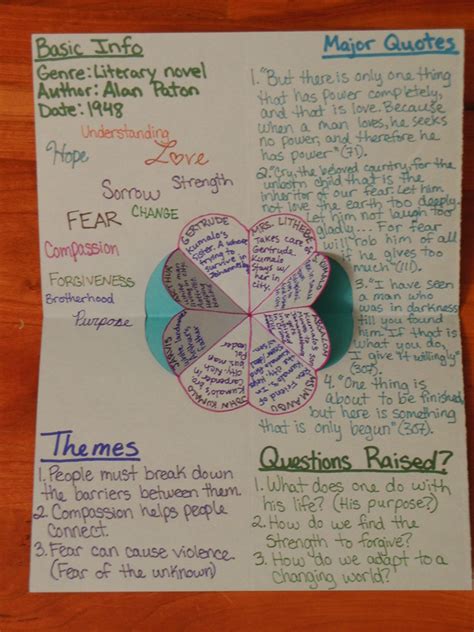 Basic Info
Genre: Literary novel
Author: Alan Paton
Date: 1948
Understanding
Hope
Love
Sorrow
Strength
FEAR
CHANGE
Compassion
FORGIVENESS
Brotherhood
Purpose
Major Quotes
1. "But there is only one thing
that has power completely,
and that is love. Because
when a man loves, he seeks
no power, and therefore he
has power"
2. "Cry, the beloved country, for the
unborn child that is the
inheritor of our fear. Let him
not love the earth too deeply.
Let him not laugh too
gladly... For fear
will rob him of all
if he gives too
much" (111).
3. "I have seen
a man who
was in darkness
till you found
him. If that is
what you do,
I give it willingly"
(307).
4. "One thing is
about to be finished,
but here is something
that is only begun" (307).
GERTRUDE
Kumalo's
sister. A whore
trying to
survive in
MRS. LITHEBE
Takes care of
Gertrude
Kumalo
Stays w/
her in
city.
ABSALOM
MSIMANGU
Friend of
JOHN KUMALO
Kumalo's bro.
Carpenter in
city. Rich
JARVIS
Themes
1. People must break down
the barriers between them.
2. Compassion helps people
connect.
3. Fear can cause violence.
(Fear of the unknown)
Questions Raised?
1. What does one do with
his life? (His purpose?)
2. How do we find the
strength to forgive?
3. How do we adapt to a
changing world?